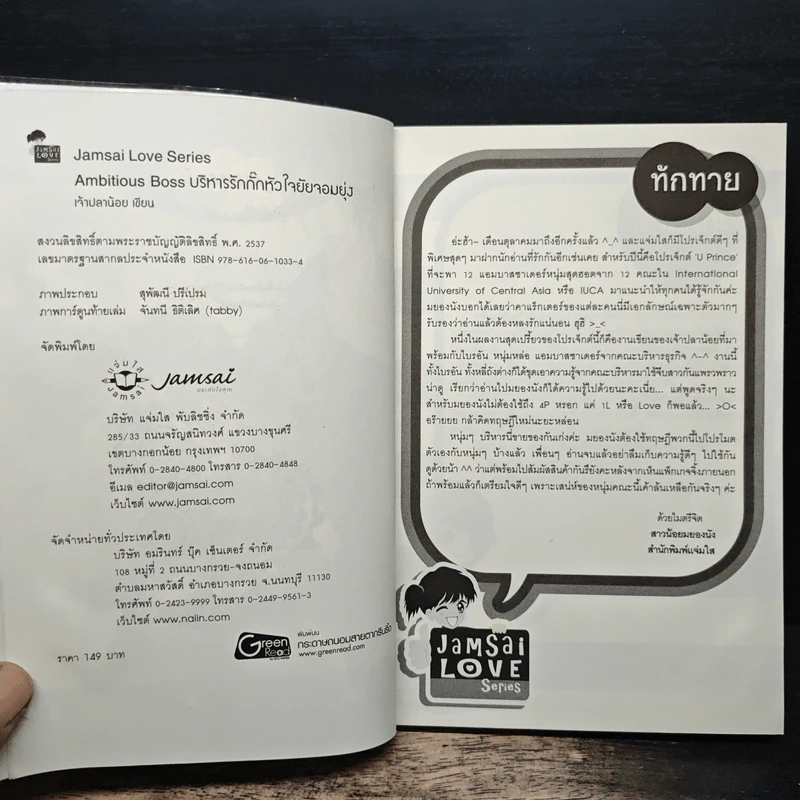 JAMSAI
LOVE
Series
Jamsai Love Series
Ambitious Boss บริหารรักกั๊กหัวใจยัยจอมยุ่ง
เจ้าปลาน้อย เขียน
สงวนลิขสิทธิ์ตามพระราชบัญญัติลิขสิทธิ์ พ.ศ. 2537
เลขมาตรฐานสากลประจำหนังสือ ISBN 978-616-06-1033-4
ภาพประกอบ สุพัฒนี ปรีเปรม
ภาพการ์ตูนท้ายเล่ม จันทนี ธิติเลิศ (tabby)
จัดพิมพ์โดย
แจ่มใส
Jamsai
Jamsai
บริษัท แจ่มใส พับลิชชิ่ง จำกัด
285/33 ถนนจรัญสนิทวงศ์ แขวงบางขุนศรี
เขตบางกอกน้อย กรุงเทพฯ 10700
โทรศัพท์ 0-2840-4800 โทรสาร 0-2840-4848
อีเมล editor@jamsai.com
เว็บไซต์ www.jamsai.com
จัดจำหน่ายทั่วประเทศโดย
บริษัท อมรินทร์ บุ๊ค เซ็นเตอร์ จำกัด
108 หมู่ที่ 2 ถนนบางกรวย-จงถนอม
ตำบลมหาสวัสดิ์ อำเภอบางกรวย จ.นนทบุรี 11130
โทรศัพท์ 0-2423-9999 โทรสาร 0-2449-9561-3
เว็บไซต์ www.naiin.com
Green
Read
พิมพ์บน
กระดาษถนอมสายตากรีนรี้ด
www.greenread.com
ราคา 149 บาท
ทักทาย
อ๊ะฮ้า~ เดือนตุลาคมมาถึงอีกครั้งแล้ว ^_^ และแจ่มใสก็มีโปรเจ็กต์ดีๆ ที่
พิเศษสุดๆ มาฝากนักอ่านที่รักกันอีกเช่นเคย สำหรับปีนี้คือโปรเจ็กต์ 'U Prince'
ที่จะพา 12 แอมบาสซาเดอร์หนุ่มสุดฮอตจาก 12 คณะใน International
University of Central Asia หรือ IUCA มาแนะนำให้ทุกคนได้รู้จักกันค่ะ
มยองนังบอกได้เลยว่าคาแร็กเตอร์ของแต่ละคนนี่มีเอกลักษณ์เฉพาะตัวมากๆ
รับรองว่าอ่านแล้วต้องหลงรักแน่นอน ฮุฮิ >_<
หนึ่งในผลงานสุดเปรี้ยวของโปรเจ็กต์นี้ก็คืองานเขียนของเจ้าปลาน้อยที่มา
พร้อมกับไบรอัน หนุ่มหล่อ แอมบาสซาเดอร์จากคณะบริหารธุรกิจ ^-^ งานนี้
ทั้งไบรอัน ทั้งหลีถังต่างก็ได้ขุดเอาความรู้จากคณะบริหารมาใช้จีบสาวกันแพรวพราว
น่าดู เรียกว่าอ่านไปมยองนังก็ได้ความรู้ไปด้วยนะคะเนี่ย... แต่พูดจริงๆ นะ
สำหรับมยองนังไม่ต้องใช้ถึง 4P หรอก แค่ 1L หรือ Love ก็พอแล้ว... >O<
อร๊ายยย กล้าคิดทฤษฎีใหม่นะยะหล่อน
หนุ่มๆ บริหารนี่ขายของกันเก่งค่ะ มยองนังต้องใช้ทฤษฎีพวกนี้ไปโปรโมต
ตัวเองกับหนุ่มๆ บ้างแล้ว เพื่อนๆ อ่านจบแล้วอย่าลืมเก็บความรู้ดีๆ ไปใช้กัน
ดูด้วยน้า ^^ ว่าแต่พร้อมไปสัมผัสสินค้ากันรึยังคะหลังจากเห็นแพ็กเกจจิ้งภายนอก
ถ้าพร้อมแล้วก็เตรียมใจดีๆ เพราะเสน่ห์ของหนุ่มคณะนี้เค้าล้นเหลือกันจริงๆ ค่ะ
ด้วยไมตรีจิต
สาวน้อยมยองนัง
สำนักพิมพ์แจ่มใส
JAMSAI
LOVE
Series